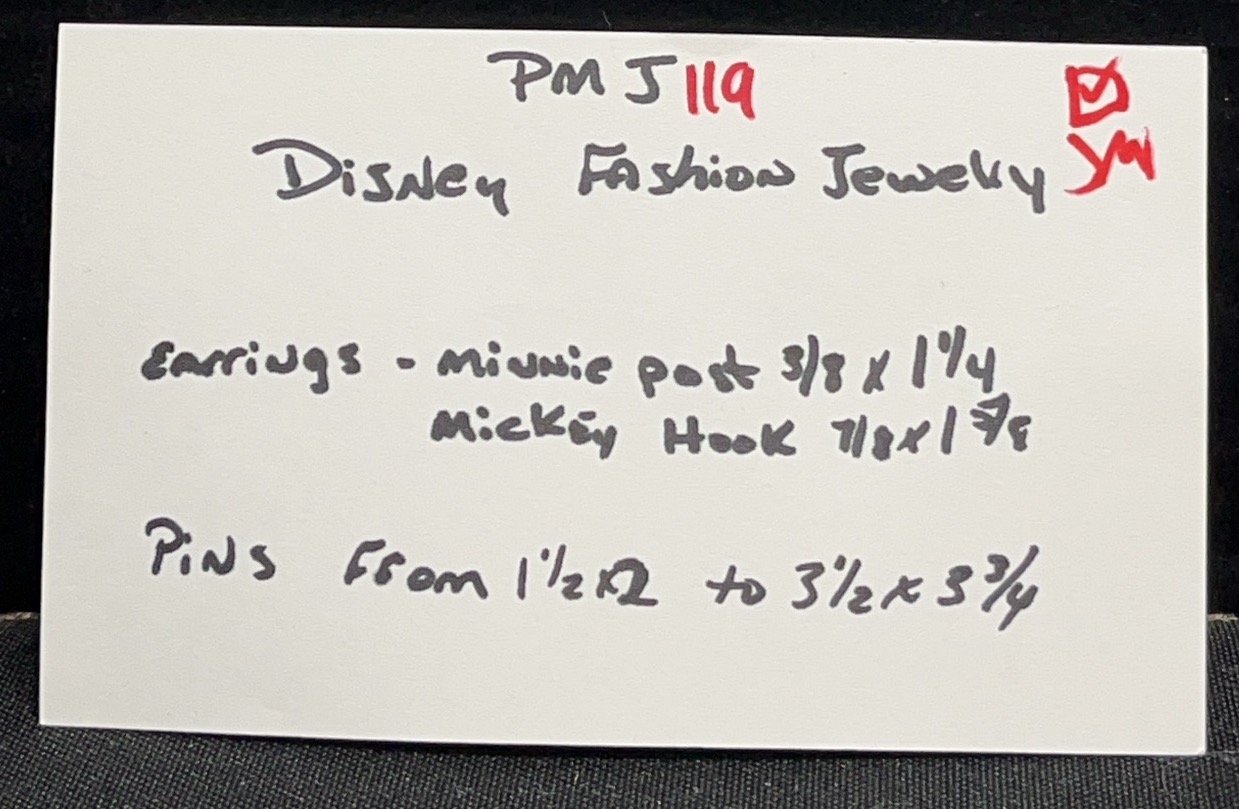 PMJ 119
Disney Fashion Jewelry
Earrings - Minnie post 3/8 x 1 1/4
Mickey Hook 7/8 x 1 7/8
Pins From 1 1/2 x 2 to 3 1/2 x 3 3/4